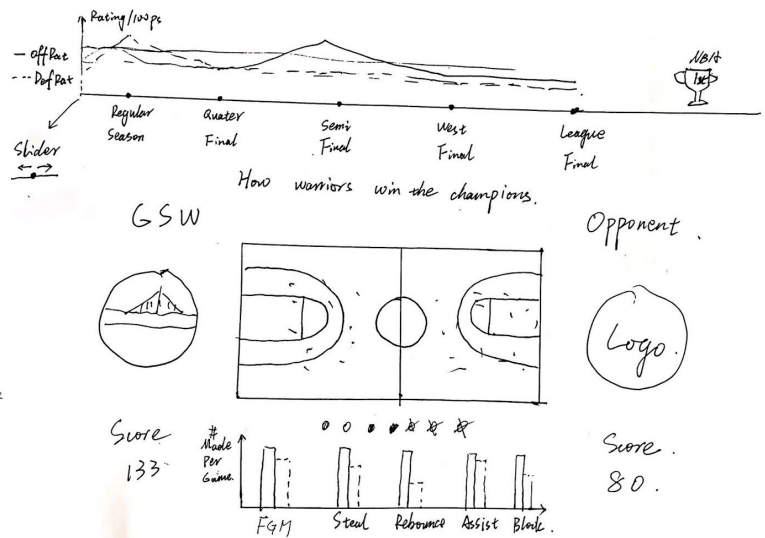 Rating/100ps
— OffRat
--- DefRat
NBA
1st
Regular
Season
Quater
Final
Semi
Final
West
Final
League
Final
Slider
How warriors win the champions.
GSW
Opponent.
Logo.
Score
133
#
Made
Per
Game.
Score.
80.
FGM
Steal
Rebounce
Assist
Block.